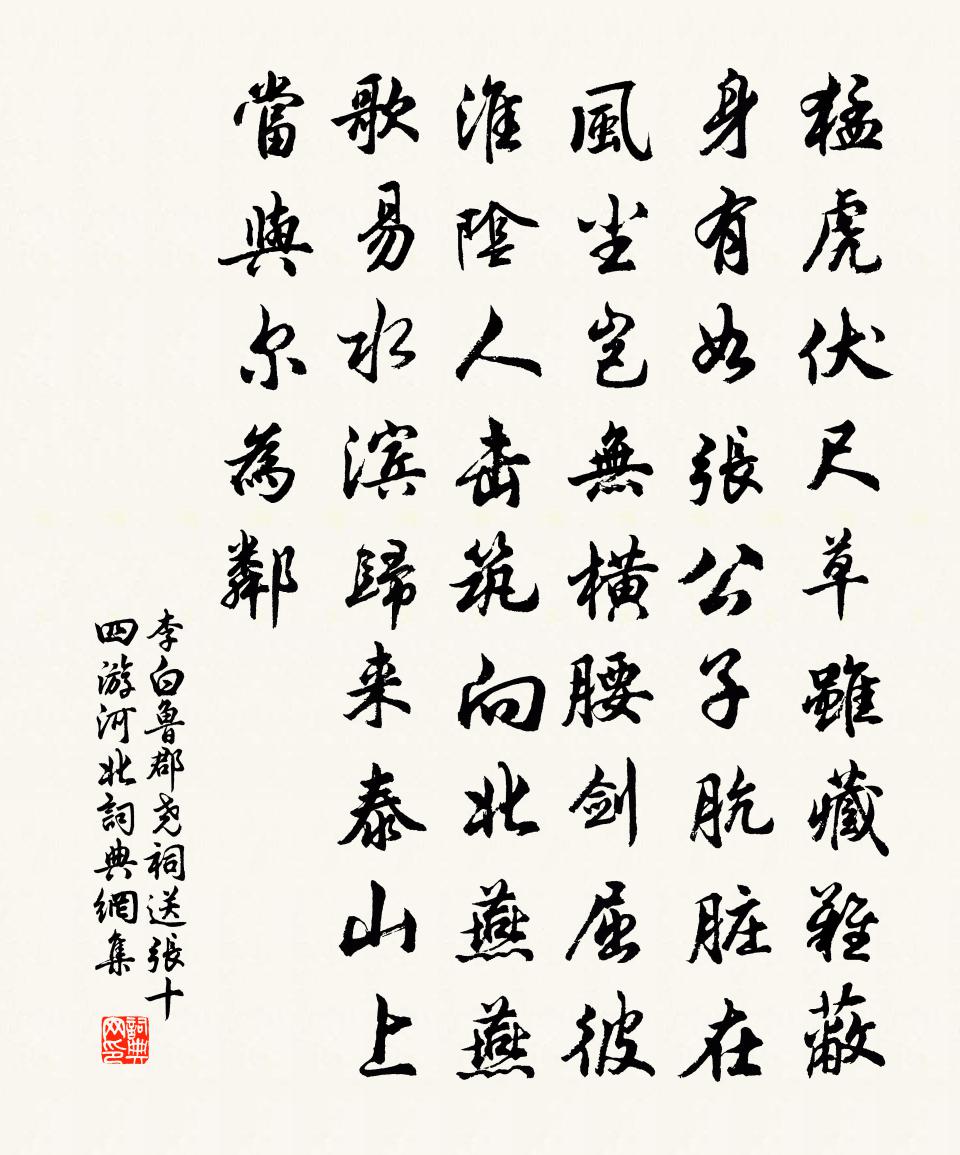 猛虎伏尺草雖藏難蔽
身有如張公子肮脏在
風尘岂無橫腰剑屈彼
淮陰人击筑向北燕燕
歌易水滨歸来泰山上
當與尔為鄰
李白鲁郡尧祠送張十
四游河北詞典網集
詞典网印